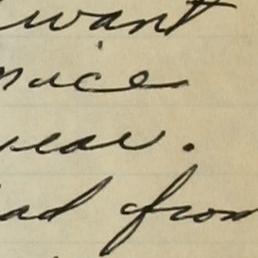 want
nice
year.
ad from